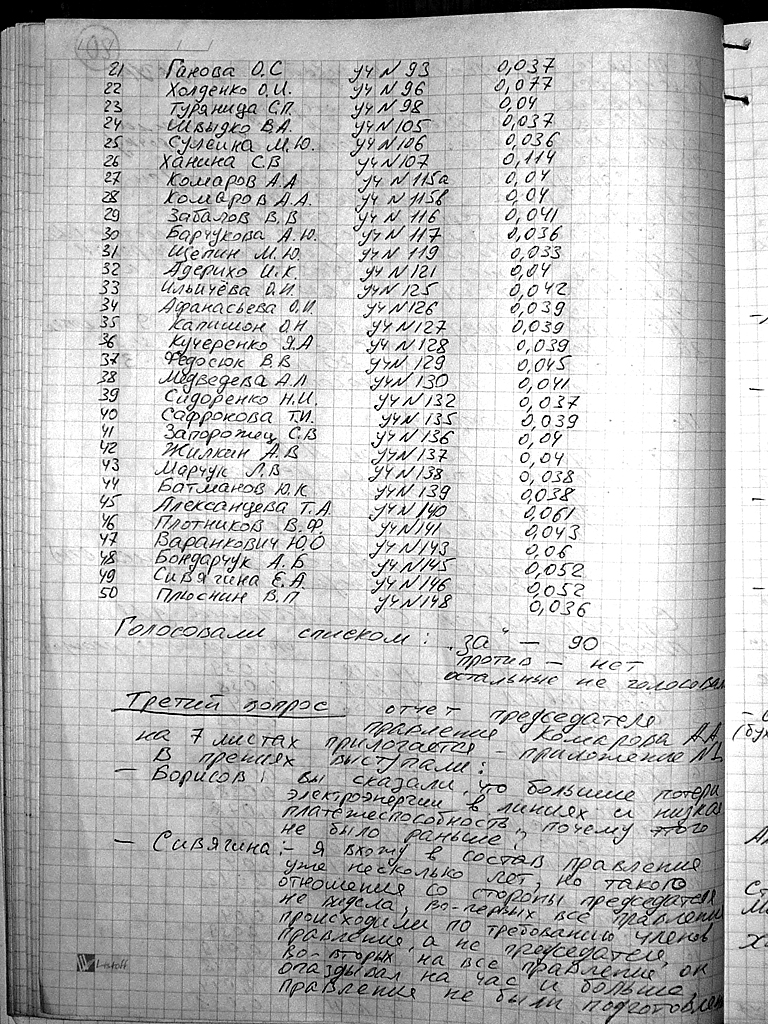 108
21 Ганова О.С уч N 93 0,037
22 Холденко О.И. уч N 96 0,077
23 Туряница С.П. уч N 98 0,04
24 Швыдко В.А. уч N 105 0,037
25 Сулеина М.Ю. уч N 106 0,036
26 Ханина С.В уч N 107 0,114
27 Комаров А.А уч N 115а 0,04
28 Комаров А.А. уч N 115б 0,04
29 Забалов В.В уч N 116 0,041
30 Барчукова А.Ю. уч N 117 0,036
31 Щепин М.Ю. уч N 119 0,033
32 Адерихо И.К. уч N 121 0,04
33 Ильичёва О.И. уч N 125 0,042
34 Афанасьева О.И. уч N 126 0,039
35 Капишон О.Н уч N 127 0,039
36 Кучеренко Я.А уч N 128 0,039
37 Федосюк В.В уч N 129 0,045
38 Медведева А.Л уч N 130 0,041
39 Сидоренко Н.И. уч N 132 0,037
40 Сафронова Т.И. уч N 135 0,039
41 Запорожец С.В уч N 136 0,04
42 Жилкин А.В уч N 137 0,04
43 Марчук Л.В уч N 138 0,038
44 Батманов Ю.К уч N 139 0,038
45 Александева Т.А уч N 140 0,061
46 Плотников В.Ф уч N 141 0,043
47 Варанкович Ю.О уч N 143 0,06
48 Бондарчук А.Б уч N 145 0,052
49 Сивягина Е.А. уч N 146 0,052
50 Плюснин В.П уч N 148 0,036
Голосовали списком: „за“ — 90
против — нет
остальные не голосовали
Третий вопрос отчет председателя
правления Комарова А.А
на 7 листах прилогается – приложение N1
В прениях выступали:
— Борисов: вы сказали, что большие потери
электроэнергии в линиях и низкая
платёжеспособность, почему этого
не было раньше?
— Сивягина: – я вхожу в состав правления
уже несколько лет, но такого
отношения со стороны председателя
не видела, во-первых все правления
происходили по требованию членов
правления, а не председателя,
во-вторых на все правления он
опаздывал на час и больше
правления не были подготовлен
Listoff